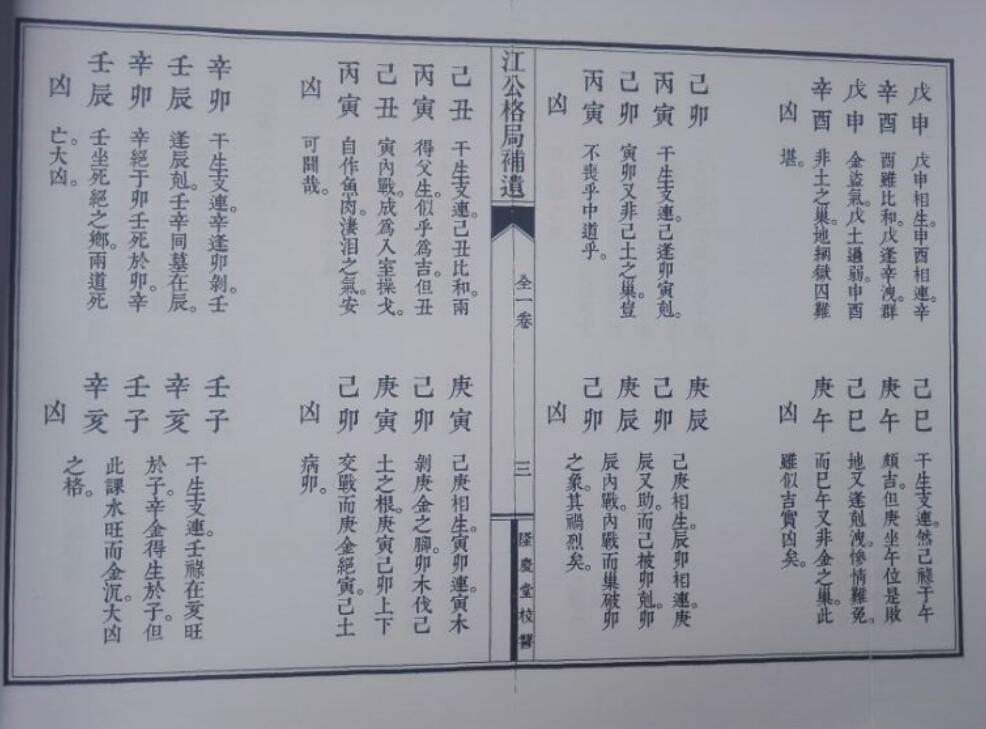 戊申 戊申相生。申酉相連。辛
辛酉 酉雖比和。戊逢辛洩。群
戊申 金盜氣。戊土過弱。申酉
辛酉 非土之巢。地網獄囚難
凶 堪。
己卯
丙寅 干生支連。己逢卯寅剋。
己卯 寅卯又非己土之巢。豈
丙寅 不喪乎中道乎。
凶
己巳 干生支連。然己祿于午
庚午 頗吉。但庚坐午位是敗
己巳 地又逢剋洩。慘情難免。
庚午 而巳午又非金之巢。此
凶 雖似吉實凶矣。
庚辰 己庚相生。辰卯相連。庚
己卯 辰又助。而己被卯剋。卯
庚辰 辰內戰。內戰而巢破卯
己卯 之象其禍烈矣。
凶
江公格局補遺
全一卷
三
隆慶堂校讐
己丑 干生支連。己丑比和。兩
丙寅 得父生。似乎為吉。但丑
己丑 寅內戰。成為入室操戈。
丙寅 自作魚肉。淒泪之氣。安
凶 可鬪哉。
辛卯 干生支連。辛逢卯剝。壬
壬辰 逢辰剋。壬辛同墓在辰。
辛卯 辛絕于卯壬死於卯。辛
壬辰 壬坐死絕之鄉。兩道死
凶 亡。大凶。
庚寅 己庚相生。寅卯連。寅木
己卯 剝庚金之腳。卯木伐己
庚寅 土之根。庚寅己卯上下
己卯 交戰。而庚金絕寅。己土
凶 病卯。
壬子 干生支連。壬祿在亥旺
辛亥 於子。辛金得生於子。但
壬子 此課水旺而金沉。大凶
辛亥 之格。
凶